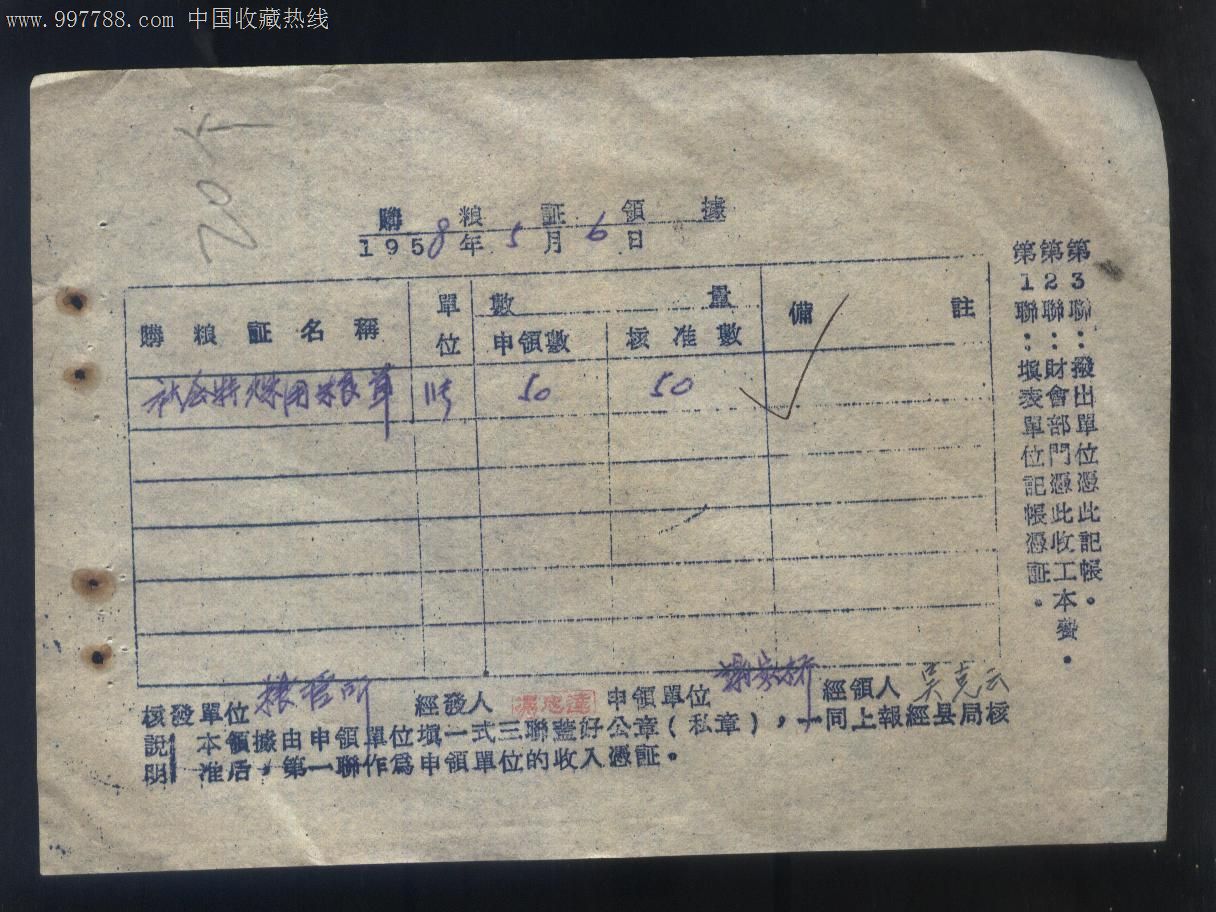 www.997788.com 中国收藏热线
20个
購粮証領據
1958年5月6日
購粮証名稱 單位 數量 備註
申領數 核准數
社会特殊用粮 50 50
核發單位 粮管所 經發人 申領單位 謝家桥 經領人 吴克云
說明 本領據由申領單位填一式三聯蓋好公章(私章),一同上報經县局核
准后,第一聯作爲申領單位的收入憑証。
第1聯:填表單位記帳憑証。
第2聯:財會部門憑此收工本費。
第3聯:撥出單位憑此記帳。